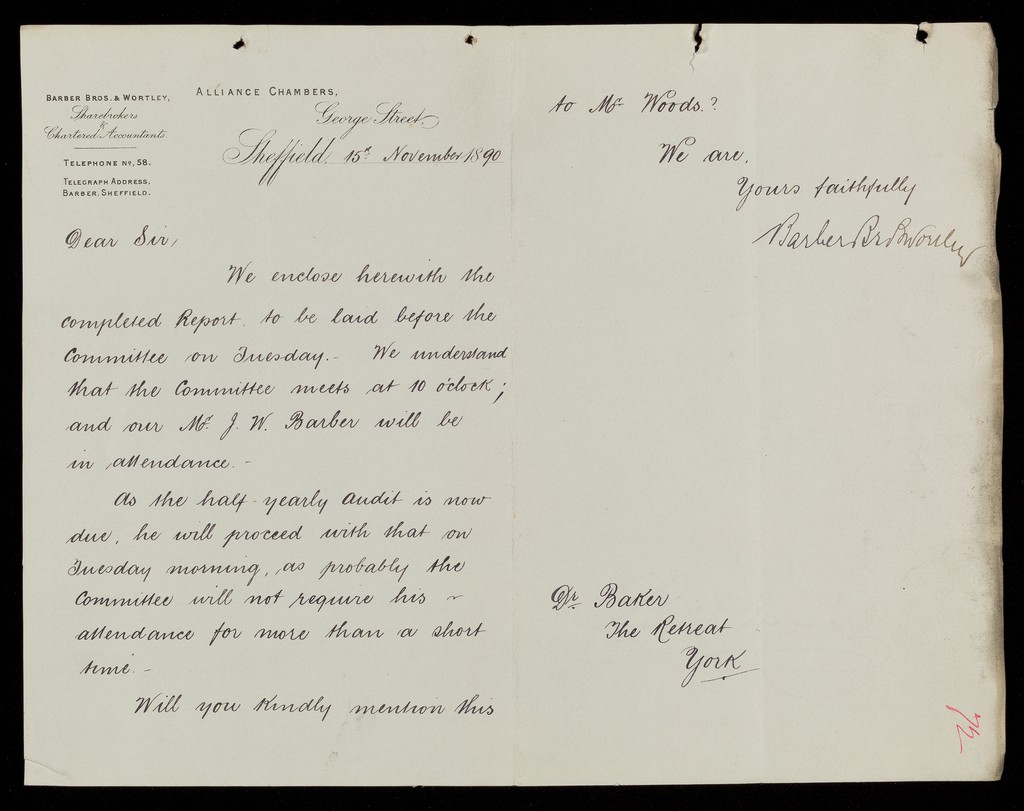 BARBER BROS. & WORTLEY,
Sharebrokers
&
Chartered Accountants.
TELEPHONE No, 58.
TELEGRAPH ADDRESS,
BARBER, SHEFFIELD.
ALLIANCE CHAMBERS,
George Street.
Sheffield, 15th November 1890
Dear Sir,
We enclose herewith the
completed Report to be laid before the
Committee on Tuesday.- We understand
that the Committee meets at 10 o'clock;
and our Mr. J. W. Barber will be
in attendance.-
As the half-yearly audit is now
due, he will proceed with that on
Tuesday morning, as probably the
Committee will not require his ~
attendance for more than a short
time.-
Will you kindly mention this
to Mr Woods.?
We are,
Yours faithfully
Barber Bros & Wortley
Dr. Baker
The Retreat
York